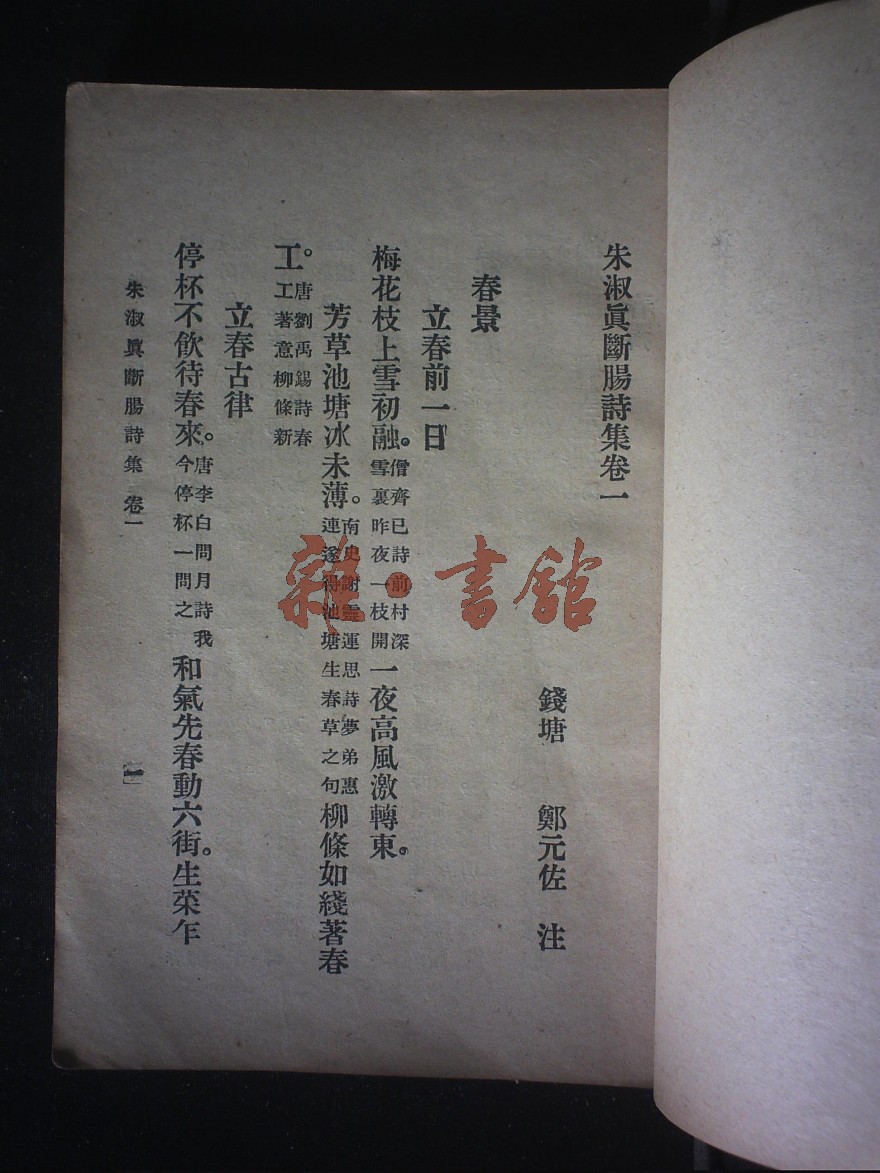 朱淑眞斷腸詩集卷一
錢塘 鄭元佐 注
春景
立春前一日
梅花枝上雪初融。僧齊已詩前村深雪裏昨夜一枝開一夜高風激轉東。
芳草池塘冰未薄。南史謝靈運思詩夢弟惠連遂得池塘生春草之句柳條如綫著春
工。唐劉禹錫詩春工著意柳條新
立春古律
停杯不飲待春來。唐李白問月詩我今停杯一問之和氣先春動六街。生菜乍
朱淑眞斷腸詩集 卷一
【一】
雜·書館